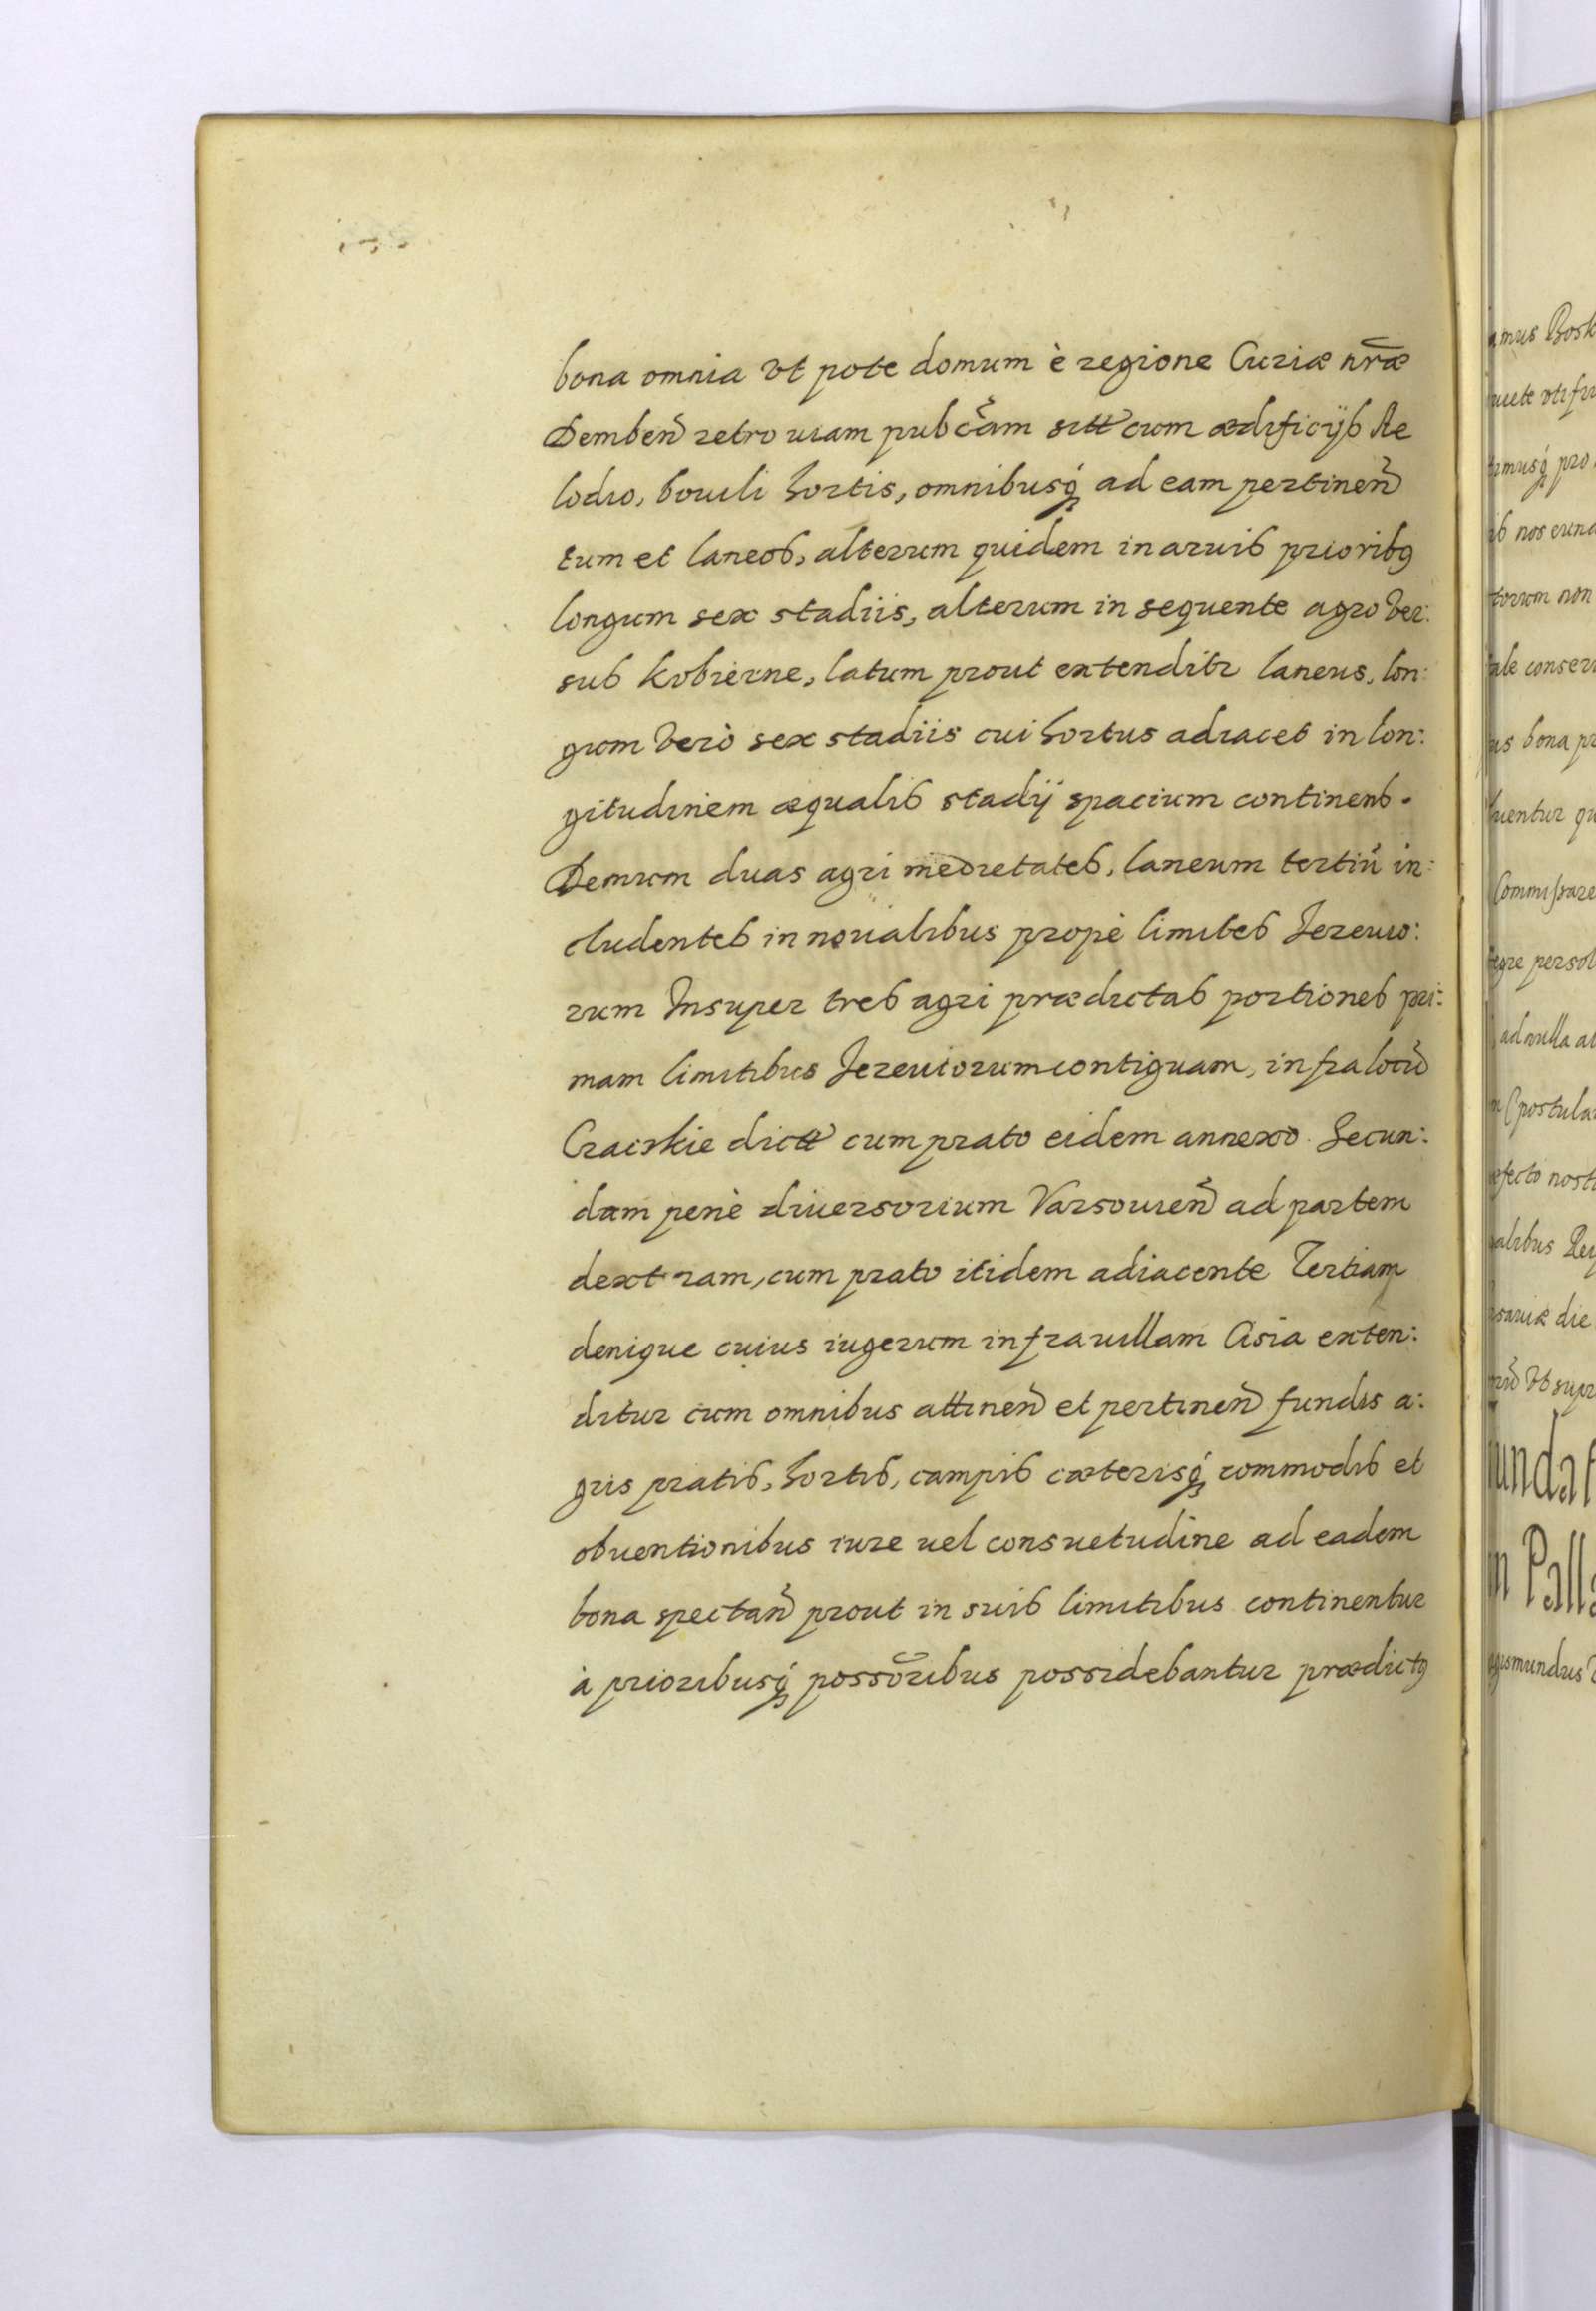 bona omnia vt pote domum è regione Curiæ nr̃æ
Demben̄ retro uiam pubc̃am sitt cum ædificijs Re
lodio, bouili hortis, omnibusq́ ad eam pertinen̄
tum et laneos, alterum quidem in aruis priorib9
longum sex stadiis, alterum in sequente agro ver:
sus kobierne, latum prout extenditr laneus, lon:
gum verò sex stadiis cui hortus adiacet in lon:
gitudinem æqualis stadij spacium continens.
Demum duas agri medietates, laneum tertiũ in:
cludentes in noualibus propè limites Jezeuio:
rum Insuper tres agri prædictas portiones pri:
mam limitibus Jezeuiorum contiguam, infra locũ
Czacskie dictt cum prato eidem annexo. Secun:
dam penè diuersorium Varsouien̄ ad partem
dextram, cum prato itidem adiacente Tertiam
denique cuius iugerum infra uillam Cisia exten:
ditur cum omnibus attinen̄ et pertinen̄ fundis a:
gris pratis, hortis, campis cæterisq́ commodis et
obuentionibus iure uel consuetudine ad eadem
bona spectan̄ prout in suis limitibus continentur
à prioribusq́ possõribus possidebantur prædict9
amus Bosk
ib nos eund
torum non
us bona pr
uentur qu
Commissare
egre persol
ad nulla al
Postula
efecto nost
alibus Reg
die
vt supr
undat
in Palla
gismundus